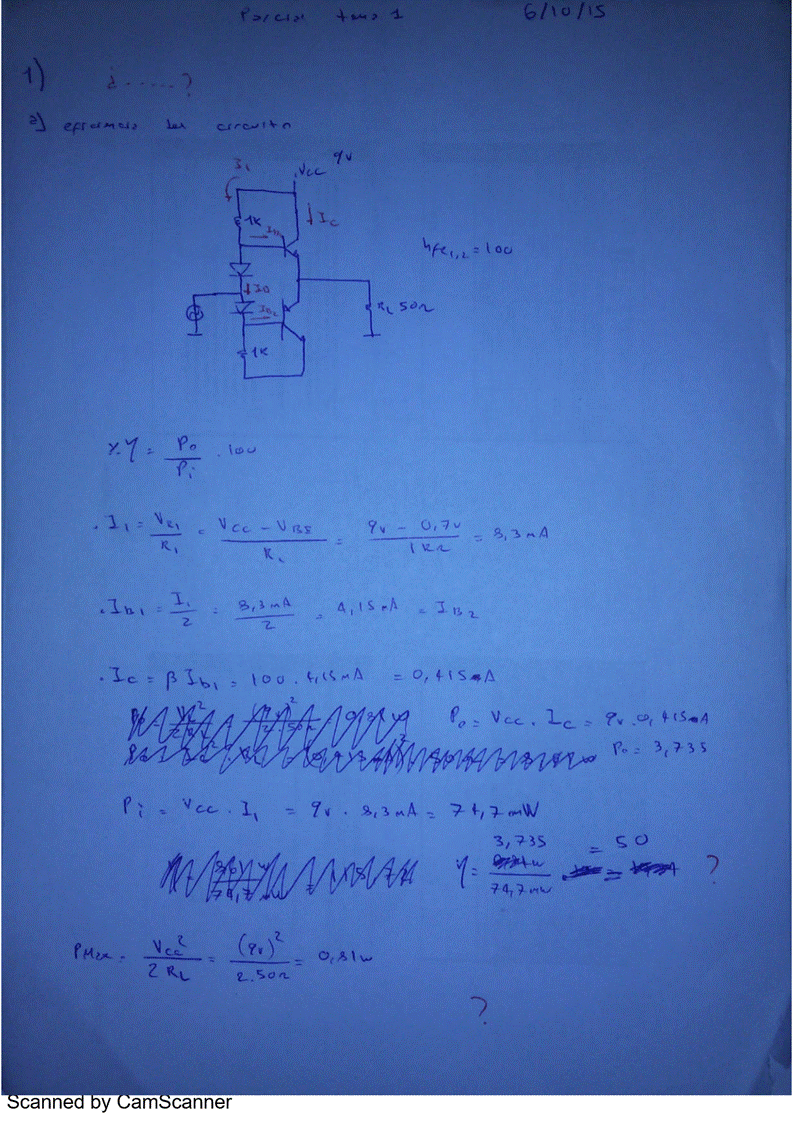 Parcial tema 1 6/10/15
1) ¿......?
2) eficiencia del circuito
I1 VCC 9v
1K IB1 IC
hfe1,2 = 100
ID
IB2 RL 50Ω
1K
%η = Po/Pi . 100
. I1 = VR1/R1 = (VCC - VBE)/R1 = (9v - 0,7v)/1KΩ = 8,3mA
. IB1 = I1/2 = 8,3mA/2 = 4,15mA = IB2
. IC = β Ib1 = 100 . 4,15mA = 0,415A
Po = VCC . IC = 9v . 0,415A
Po = 3,735
Pi = VCC . I1 = 9v . 8,3mA = 74,7mW
η = 3,735/74,7mW = 50 ?
PMax = VCC²/(2 RL) = (9v)²/(2.50Ω) = 0,81w
?
Scanned by CamScanner